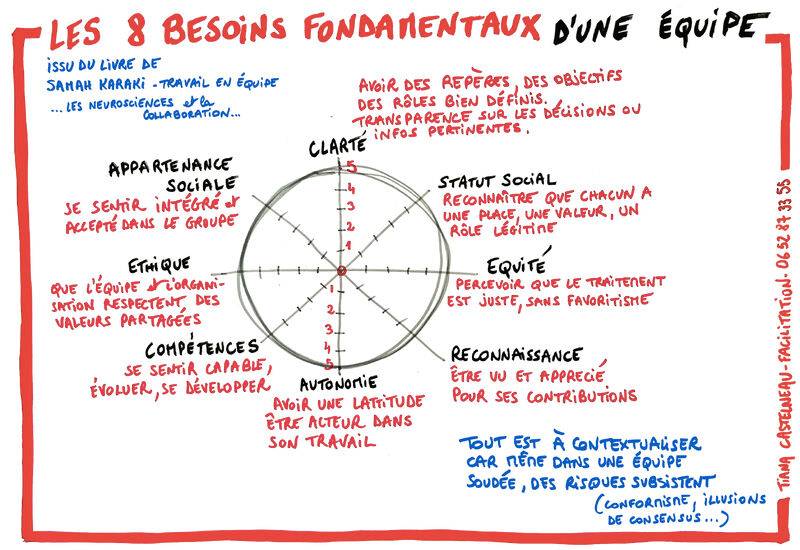 LES 8 BESOINS FONDAMENTAUX D'UNE ÉQUIPE
ISSU DU LIVRE DE
SAMAH KARAKI - TRAVAIL EN ÉQUIPE
... LES NEUROSCIENCES et la
COLLABORATION...
AVOIR DES REPÈRES, DES OBJECTIFS
DES RÔLES BIEN DÉFINIS.
TRANSPARENCE SUR LES DÉCISIONS OU
INFOS PERTINENTES.
CLARTÉ
APPARTENANCE
SOCIALE
SE SENTIR INTÉGRÉ et
ACCEPTÉ DANS LE GROUPE
STATUT SOCIAL
RECONNAÎTRE QUE CHACUN A
UNE PLACE, UNE VALEUR, UN
RÔLE LÉGITIME
5
4
3
2
1
ETHIQUE
QUE L'ÉQUIPE et L'ORGANI-
SATION RESPECTENT DES
VALEURS PARTAGÉES
EQUITÉ
PERCEVOIR QUE LE TRAITEMENT
EST JUSTE, SANS FAVORITISME
1
2
3
4
5
COMPÉTENCES
SE SENTIR CAPABLE,
ÉVOLUER, SE DÉVELOPPER
RECONNAISSANCE
ÊTRE VU ET APPRECIÉ
POUR SES CONTRIBUTIONS
AUTONOMIE
AVOIR UNE LATTITUDE
ÊTRE ACTEUR DANS
SON TRAVAIL
TOUT EST À CONTEXTUALISER
CAR MÊME DANS UNE ÉQUIPE
SOUDÉE, DES RISQUES SUBSISTENT
(CONFORMISME, ILLUSIONS
DE CONSENSUS...)
TIANA CASTELNEAU - FACILITATION - 06 52 87 33 55